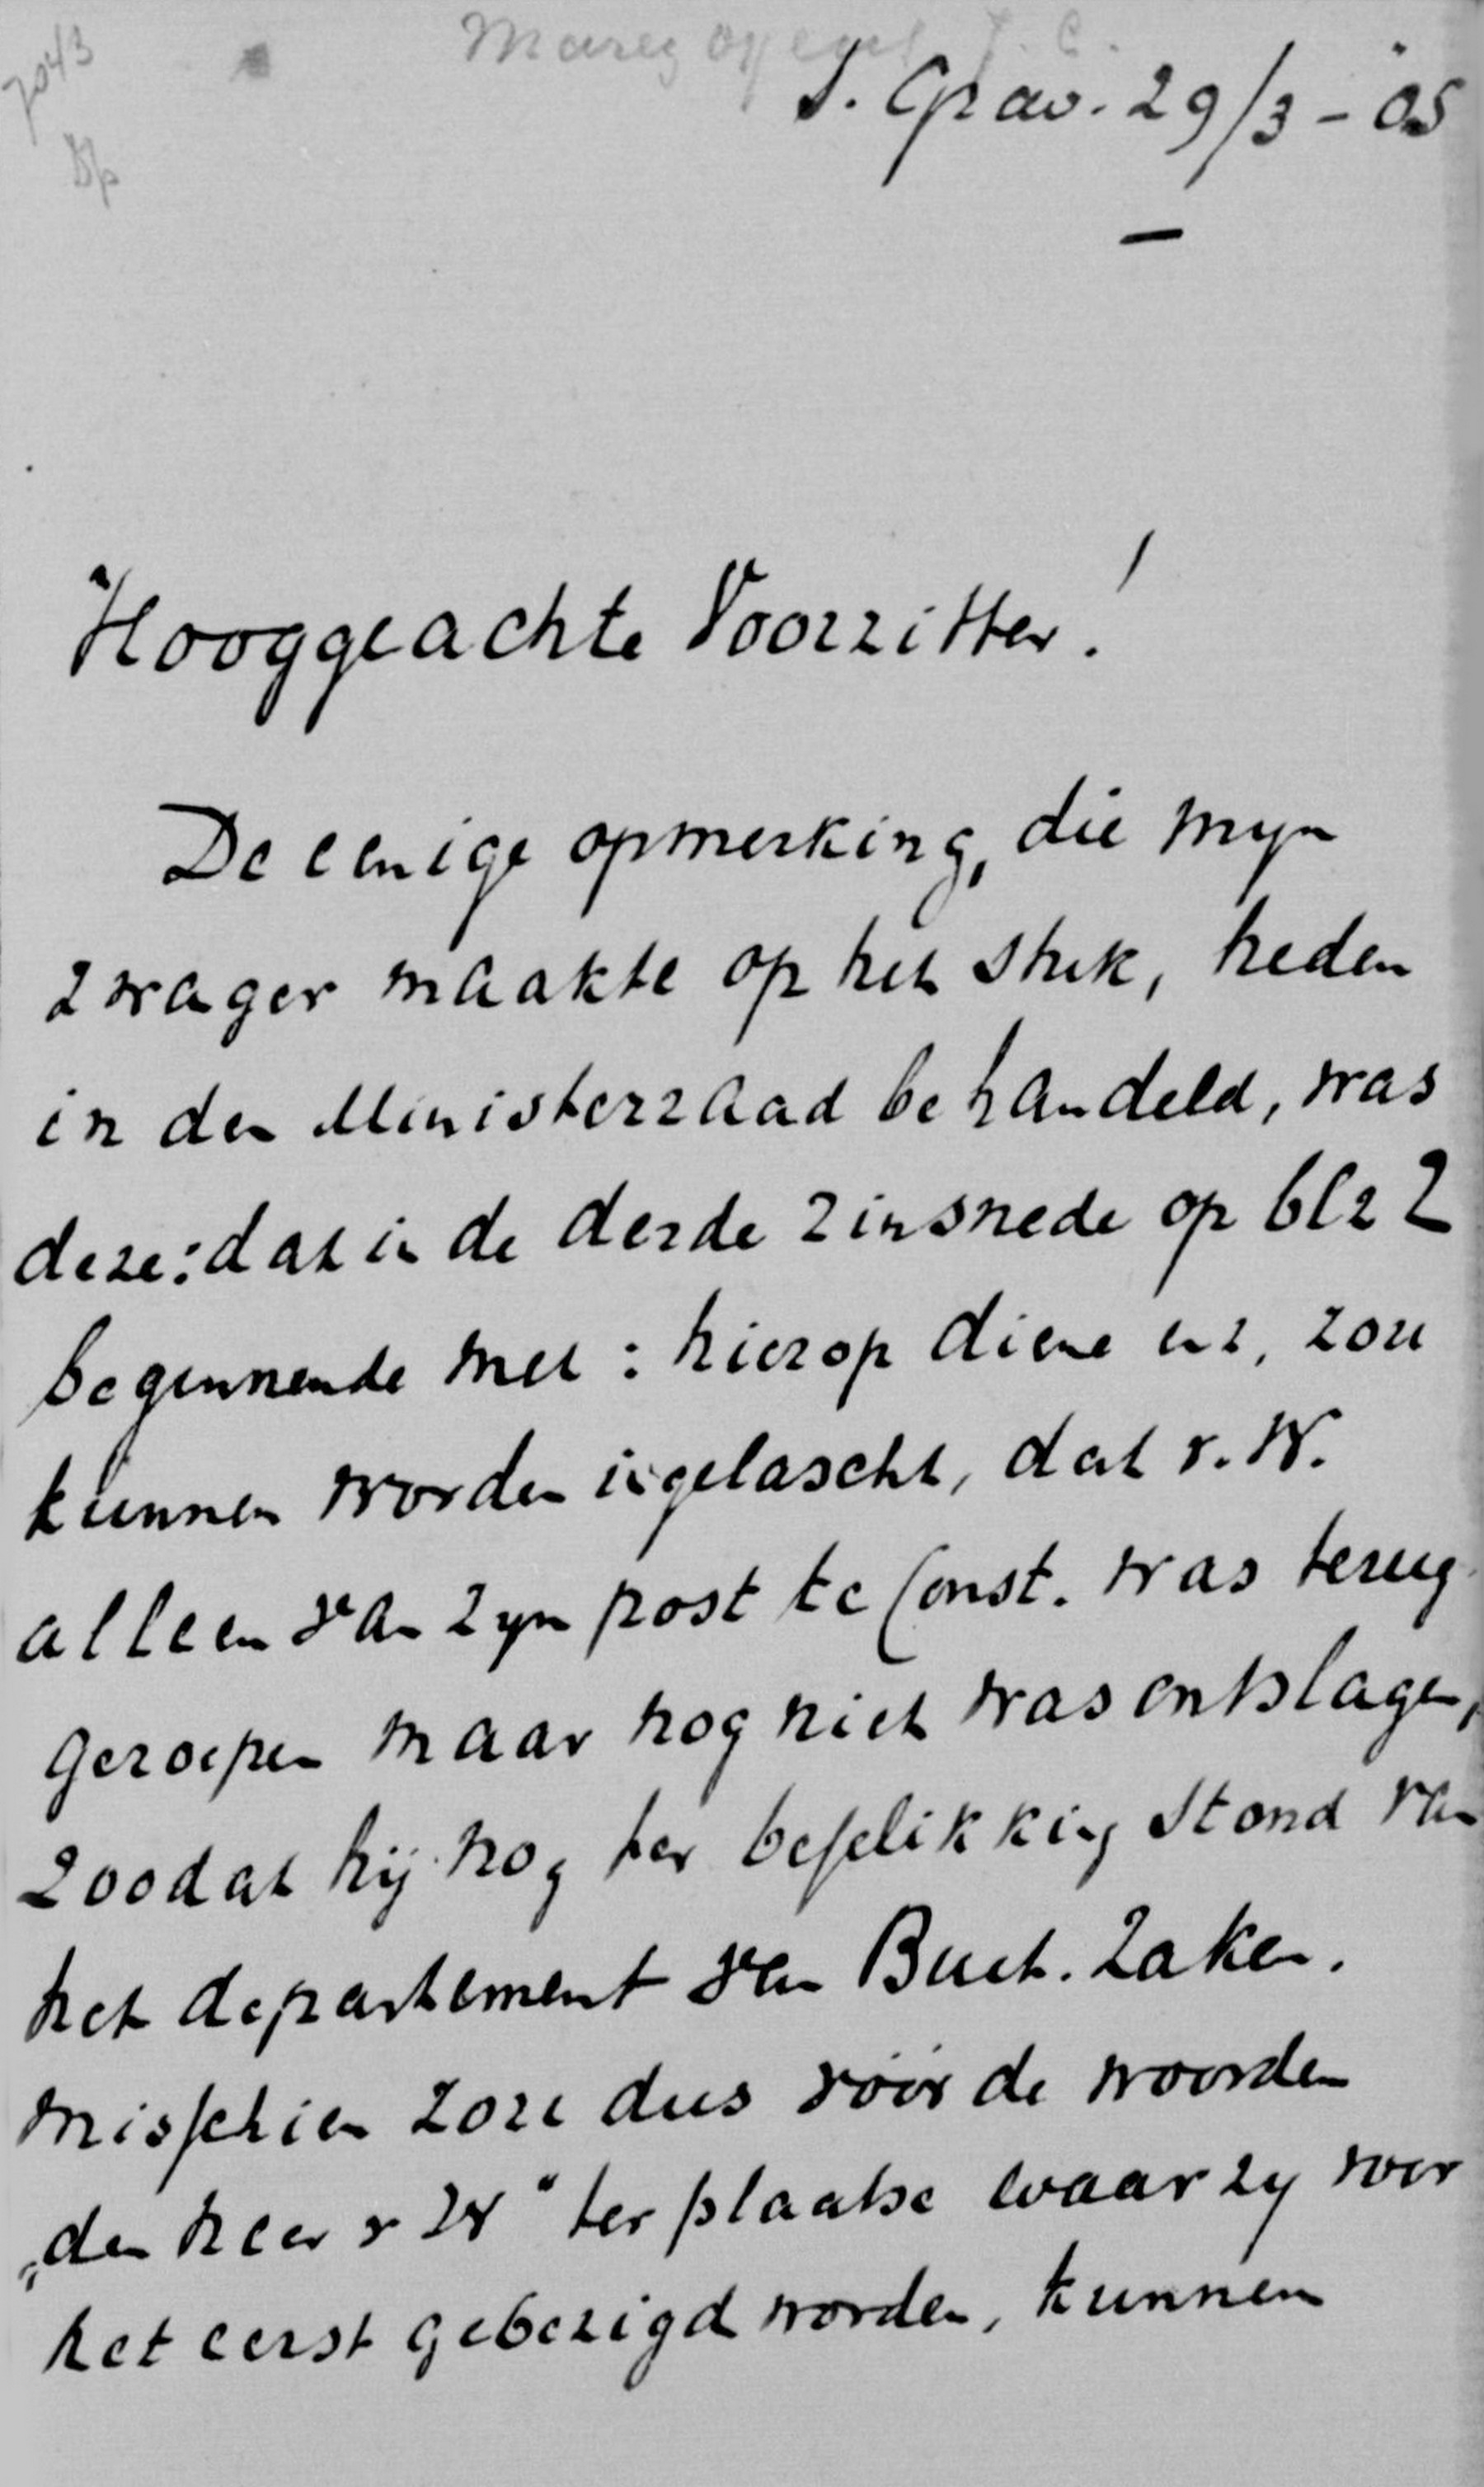 7043
Bp
S. Grav. 29/3 - 05
Hooggeachte Voorzitter!
De eenige opmerking, die myn
zwager maakte op het stuk, heden
in den Ministerraad behandeld, was
deze: dat in de derde zinsnede op blz 2
beginnende met: hierop diene enz, zou
kunnen worden ingelascht, dat v. W.
alleen van zyn post te Const. was terug
geroepen maar nog niet was ontslagen,
zoodat hij nog ter beschikking stond van
het departement van Buit. Zaken.
Misschien zou dus vóór de woorden
„den heer v W" ter plaatse waar zy voor
het eerst gebezigd worden, kunnen